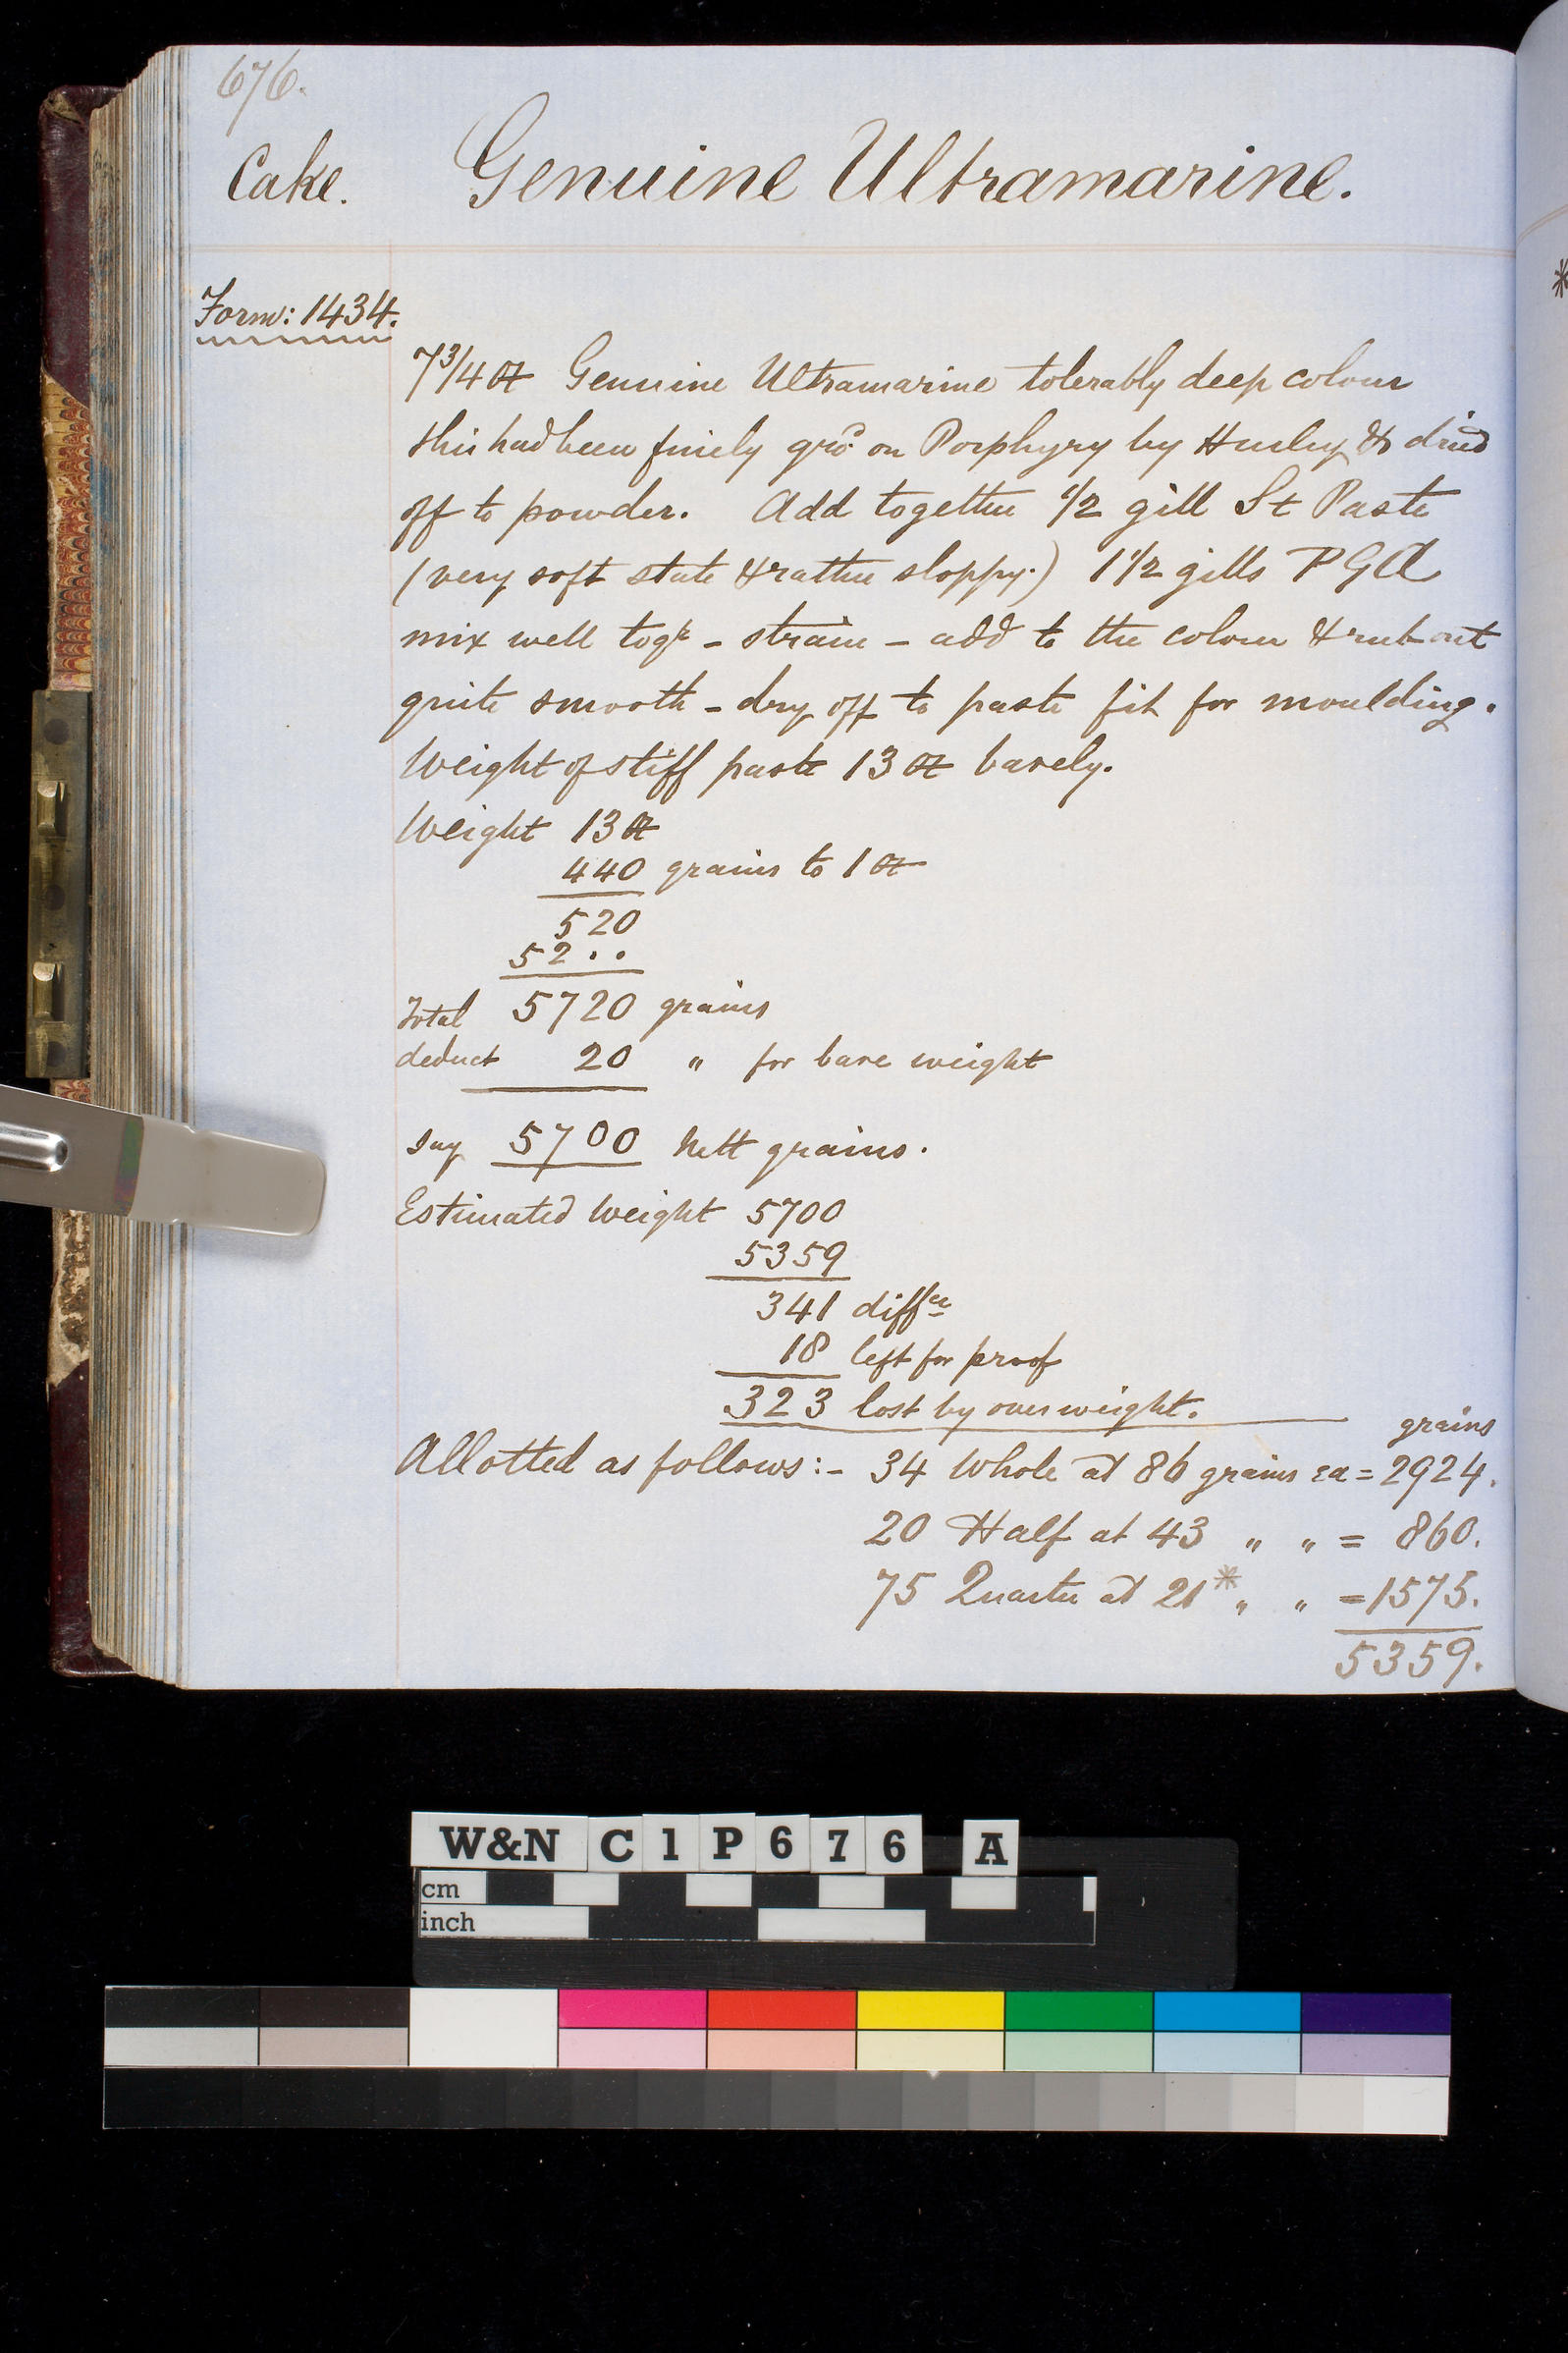 676.
Cake. Genuine Ultramarine.
Form: 1434.
7 3/4 oz Genuine Ultramarine tolerably deep colour
this had been finely gr'd on Porphyry by Hurley & dried
off to powder. Add together 1/2 gill St Paste
(very soft state & rather sloppy.) 1 1/2 gills P G A
mix well tog'r - strain - add to the colour & rub out
quite smooth - dry off to paste fit for moulding.
Weight of stiff paste 13 oz barely.
Weight 13 oz
440 grains to 1 oz
520
52..
Total 5720 grains
deduct 20 " for bare weight
say 5700 Nett grains.
Estimated Weight 5700
5359
341 diff'ce
18 left for proof
323 lost by overweight.
grains
Allotted as follows:- 34 Whole at 86 grains ea = 2924.
20 Half at 43 " " = 860.
75 Quarter at 21* " " = 1575.
5359.
*
W&N C1P676 A
cm
inch